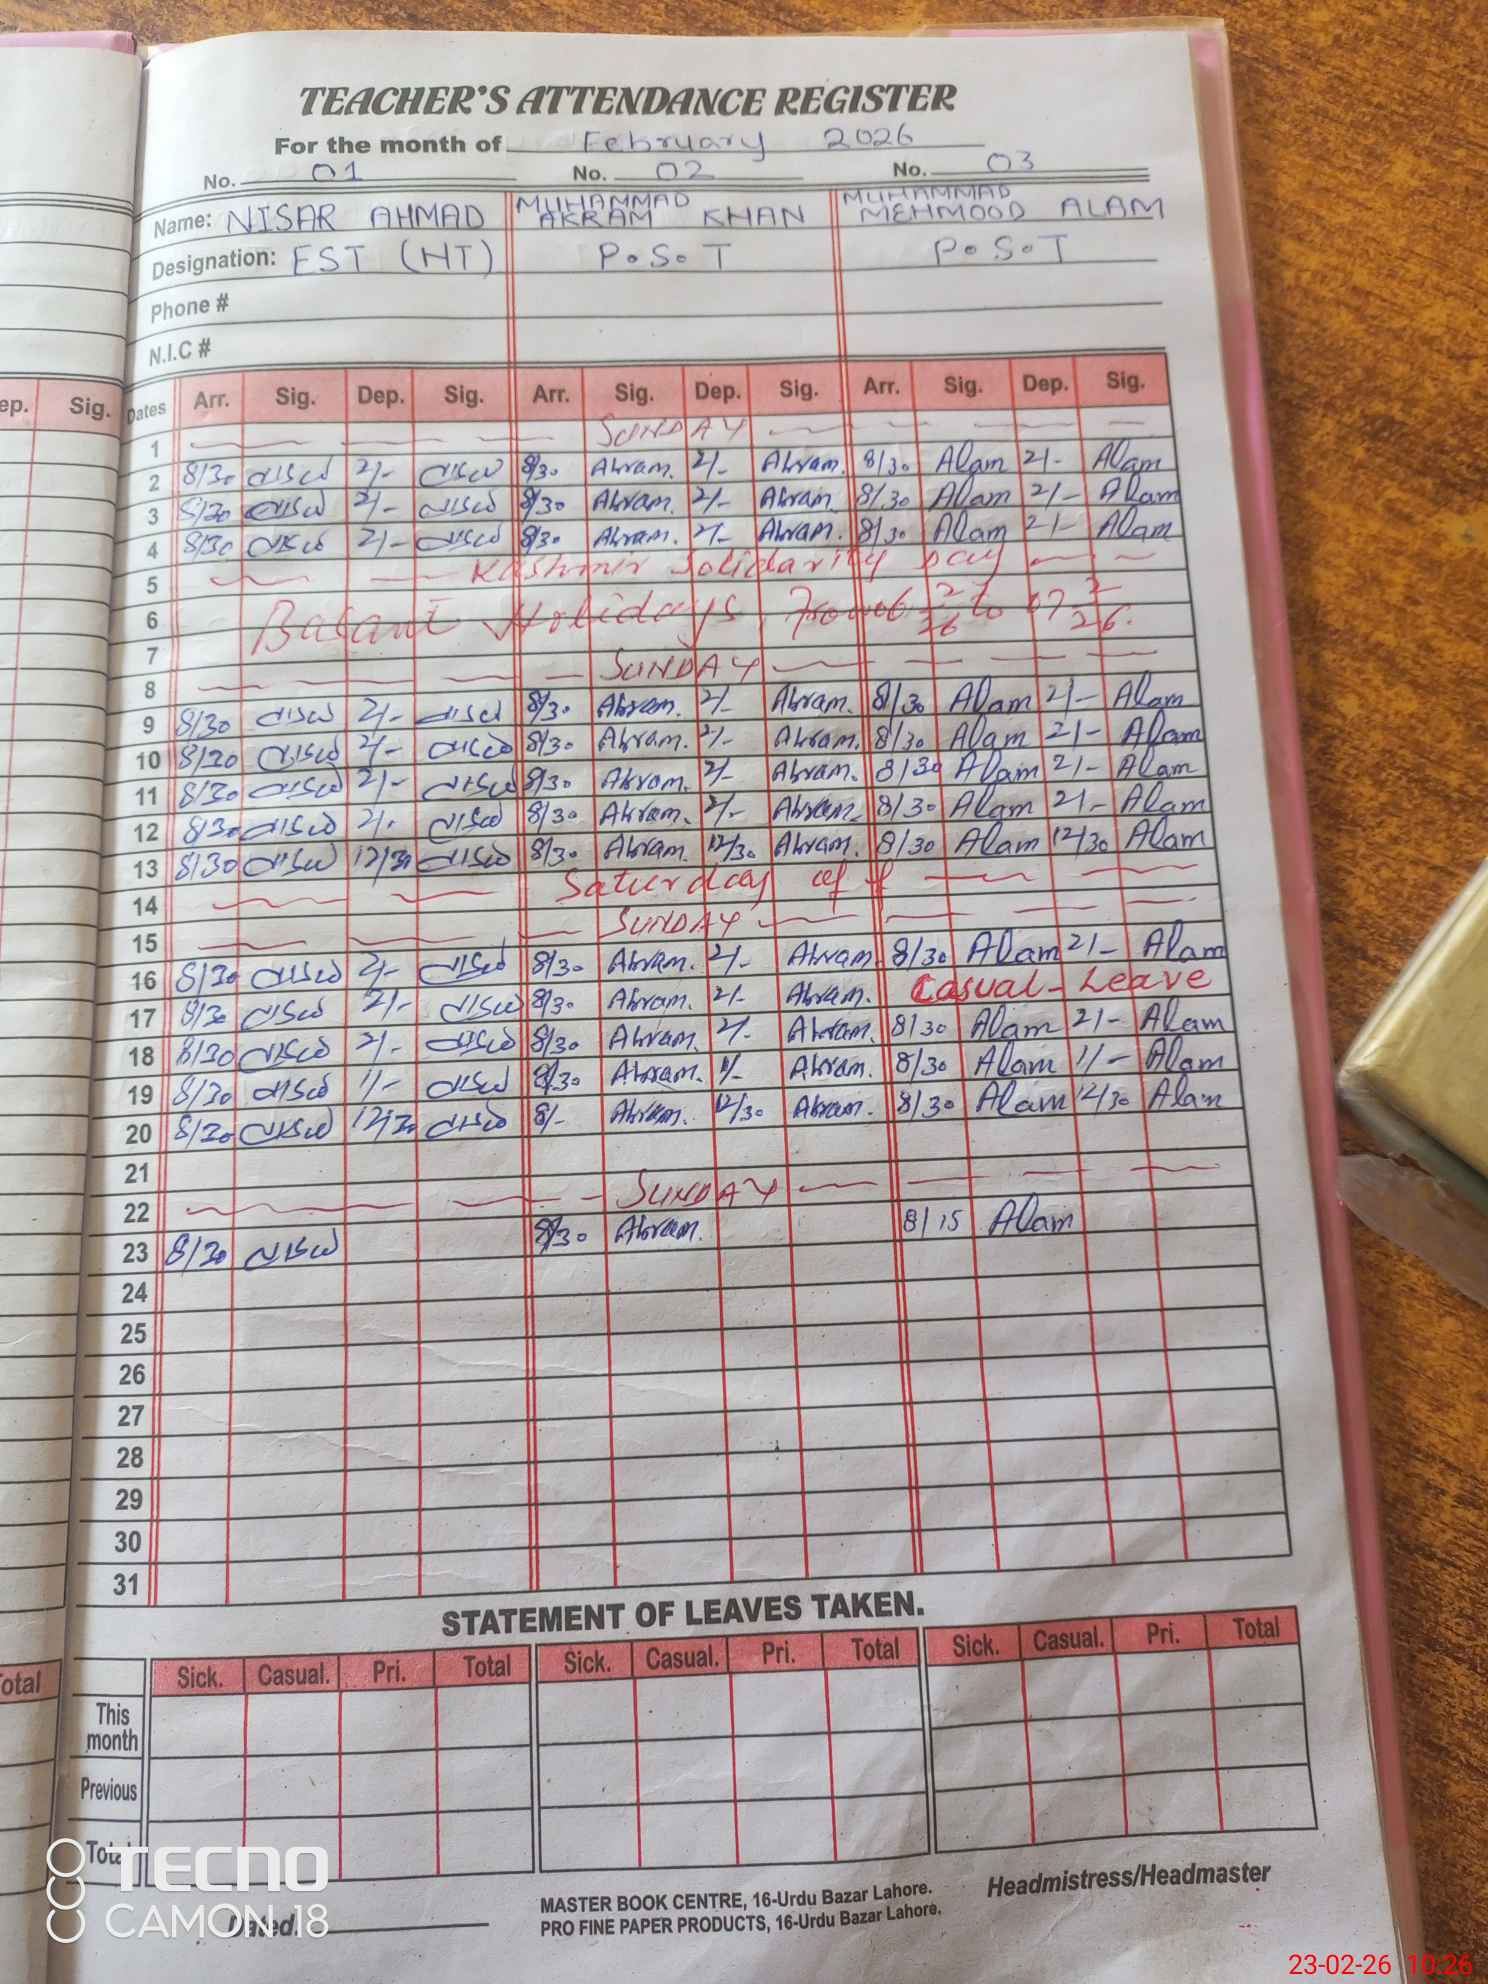 TEACHER'S ATTENDANCE REGISTER
For the month of February 2026
No. 01 No. 02 No. 03
Name: NISAR AHMAD MUHAMMAD AKRAM KHAN MUHAMMAD MEHMOOD ALAM
Designation: EST (HT) P.S.T P.S.T
Phone #
N.I.C #
ep. Sig. Dates Arr. Sig. Dep. Sig. Arr. Sig. Dep. Sig. Arr. Sig. Dep. Sig.
1 SUNDAY
2 8/30 2/- 8/30 Akram. 2/- Akram. 8/30 Alam 2/- Alam
3 8/30 2/- 8/30 Akram. 2/- Akram 8/30 Alam 2/- Alam
4 8/30 2/- 8/30 Akram. 2/- Akram. 8/30 Alam 2/- Alam
5 Kashmir Solidarity Day
6 Basant Holidays From 06 2/26 to 07 2/26.
7
8 SUNDAY
9 8/30 2/- 8/30 Akram. 2/- Akram. 8/30 Alam 2/- Alam
10 8/30 2/- 8/30 Akram. 2/- Akram. 8/30 Alam 2/- Alam
11 8/30 2/- 8/30 Akram. 2/- Akram. 8/30 Alam 2/- Alam
12 8/30 2/- 8/30 Akram. 2/- Akram. 8/30 Alam 2/- Alam
13 8/30 12/30 8/30 Akram. 12/30 Akram. 8/30 Alam 12/30 Alam
14 Saturday off
15 SUNDAY
16 8/30 2/- 8/30 Akram. 2/- Akram 8/30 Alam 2/- Alam
17 8/30 2/- 8/30 Akram. 2/- Akram. Casual - Leave
18 8/30 2/- 8/30 Akram. 2/- Akram. 8/30 Alam 2/- Alam
19 8/30 1/- 8/30 Akram. 1/- Akram. 8/30 Alam 1/- Alam
20 8/30 12/30 8/- Akram. 12/30 Akram. 8/30 Alam 12/30 Alam
21
22 SUNDAY
23 8/30 8/30 Akram. 8/15 Alam
24
25
26
27
28
29
30
31
STATEMENT OF LEAVES TAKEN.
otal Sick. Casual. Pri. Total Sick. Casual. Pri. Total Sick. Casual. Pri. Total
This month
Previous
Total
TECNO
CAMON 18
Dated.
MASTER BOOK CENTRE, 16-Urdu Bazar Lahore.
PRO FINE PAPER PRODUCTS, 16-Urdu Bazar Lahore.
Headmistress/Headmaster
23-02-26 10:26